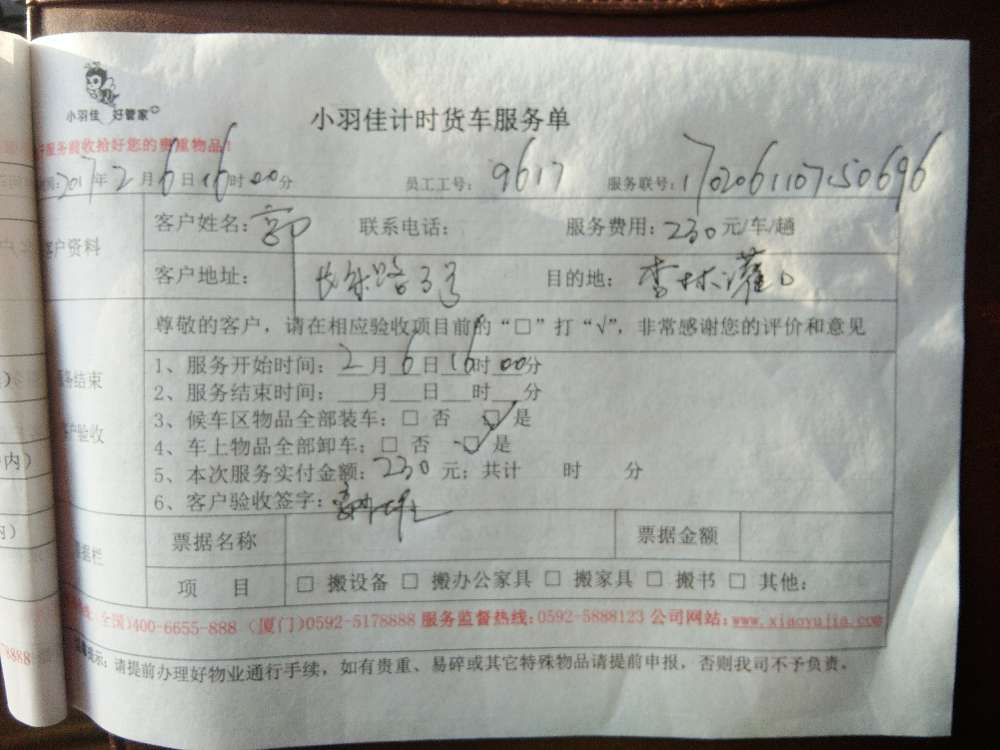 小羽佳 好管家
小羽佳计时货车服务单
服务前收拾好您的贵重物品!
间:2017年2月6日16时00分 员工工号:9617 服务联号:170206110750696
客户资料
客户姓名:郭 联系电话: 服务费用:230元/车/趟
客户地址:长乐路3号 目的地:杏林灌口
尊敬的客户，请在相应验收项目前的“□”打“√”，非常感谢您的评价和意见
服务结束
客户验收
1、服务开始时间:2月6日16时00分
2、服务结束时间:___月___日___时___分
3、候车区物品全部装车:□ 否 ☑ 是
4、车上物品全部卸车:□ 否 ☑ 是
5、本次服务实付金额:230元；共计 时 分
6、客户验收签字:
票据名称 票据金额
据栏
项 目 □ 搬设备 □ 搬办公家具 □ 搬家具 □ 搬书 □ 其他:
(全国)400-6655-888 (厦门)0592-5178888 服务监督热线:0592-5888123 公司网站:www.xiaoyujia.com
提示:请提前办理好物业通行手续，如有贵重、易碎或其它特殊物品请提前申报，否则我司不予负责。